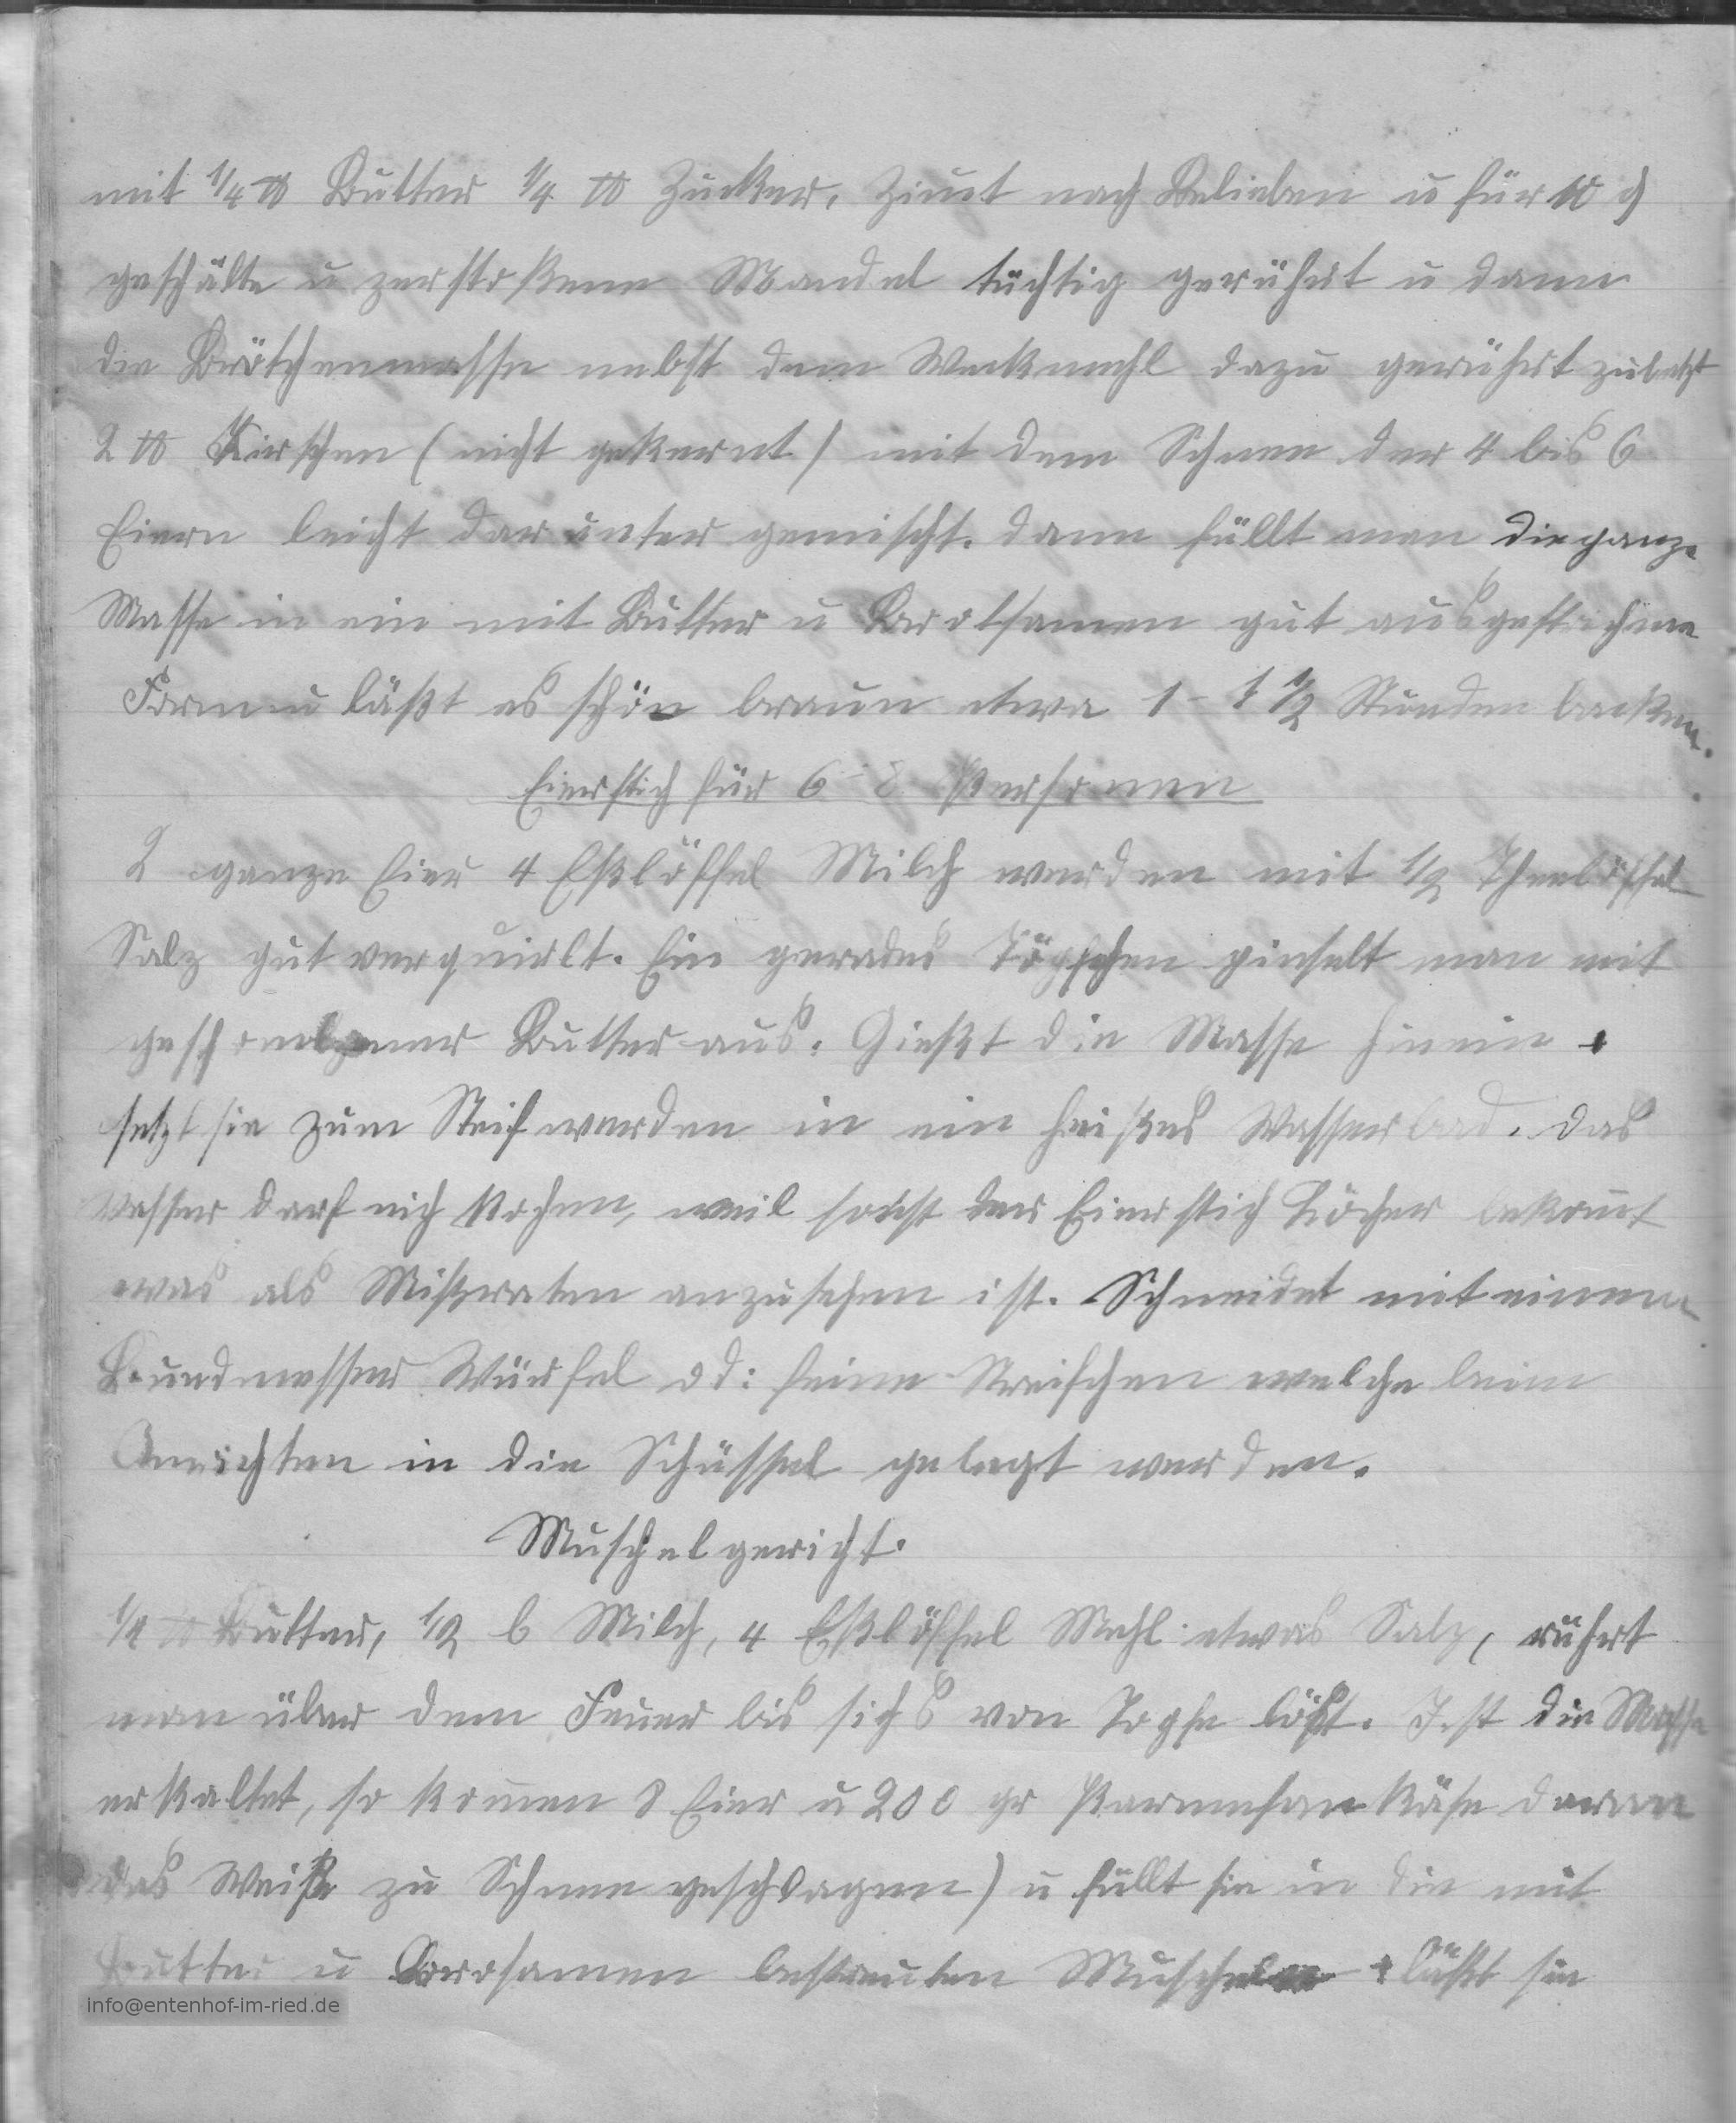 mit ¼ ℔ Butter ¼ ℔ Zucker, Zimt nach Belieben u für 10 ₰
geschälte u zerstoßene Mandel tüchtig gerührt u dann
die Brötchenmasse nebst dem Weckmehl dazu gerührt zuletzt
2 ℔ Kirschen (nicht gekernt) mit dem Schnee der 4 bis 6
Eiern leicht darunter gemischt. dann füllt man die ganze
Masse in ein mit Butter u Brotsamen gut ausgestrichene
Form u läßt es schön braun etwa 1 - 1 ½ Stunden backen.
Eierstich für 6 - 8 Personen
2 ganze Eier 4 Eßlöffel Milch werden mit ½ Theelöffel
Salz gut verquirlt. Ein gerades Töpfchen pinselt man mit
geschmolzener Butter aus. Gießt die Masse hinein
setzt sie zum Steifwerden in ein heißes Wasserbad. das
Wasser darf nich kochen, weil sonst der Eierstich Löcher bekom̄t
was als Mißraten anzusehen ist. Schneidet mit einem
Bundmesser Würfel od: feine Streifchen welche beim
Anrichten in die Schüssel gelegt werden.
Muschelgericht.
¼ ℔ Butter, ½ l Milch, 4 Eßlöffel Mehl etwas Salz, rührt
man über dem Feuer bis sichs von Topfe löst. Ist die Masse
erkaltet, so kom̄en 8 Eier u 200 gr Parmesan Käse daran
das Weiße zu Schnee geschlagen) u füllt sie in die mit
Butter u Brosamen bestreuten Muscheln läßt sie
info@entenhof-im-ried.de